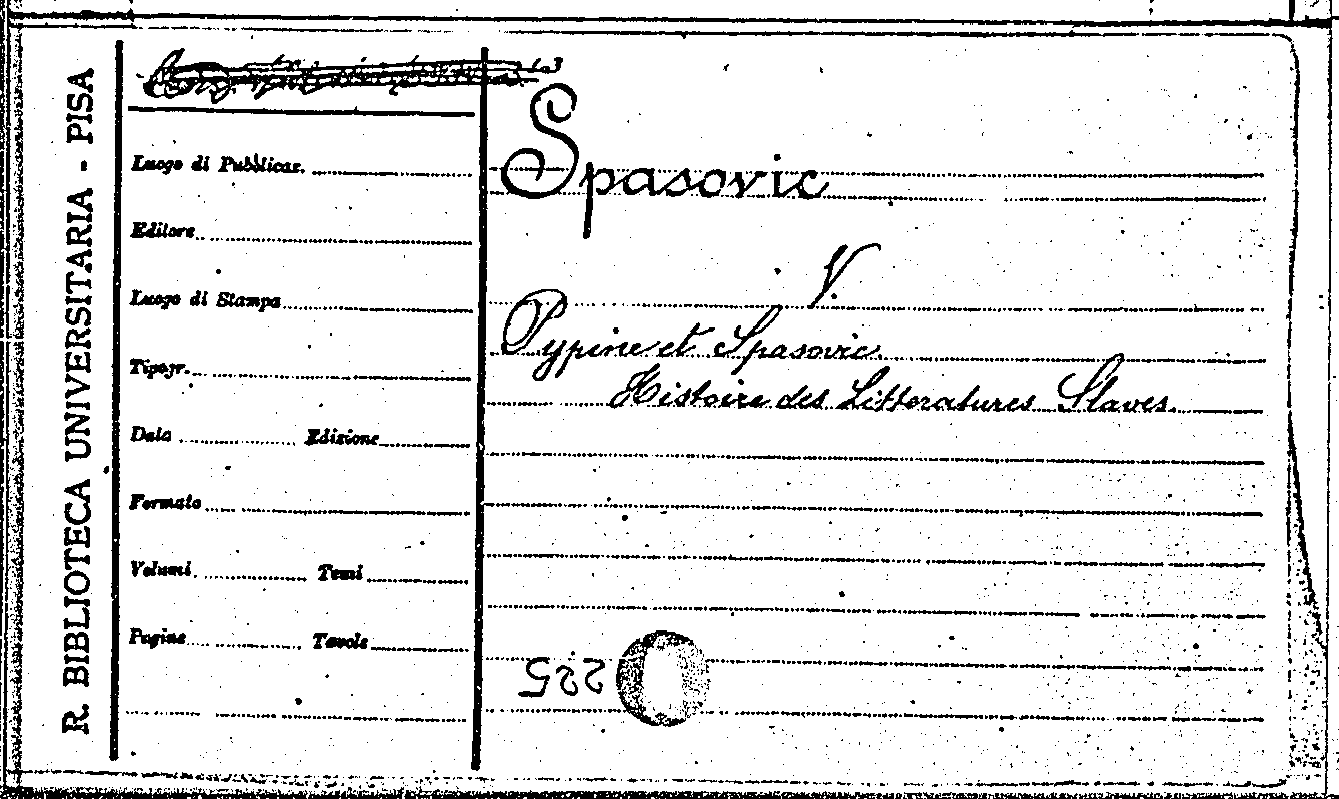 R. BIBLIOTECA UNIVERSITARIA - PISA
Luogo di Pubblicaz.
Editore
Luogo di Stampa
Tipogr.
Data Edizione
Formato
Volumi Tomi
Pagine Tavole
Spasovic
V.
Pypine et Spasovic
Histoire des Litteratures Slaves.
225